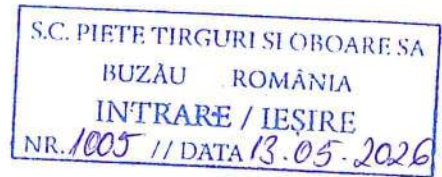 S.C. PIETE TIRGURI SI OBOARE SA
BUZĂU ROMÂNIA
INTRARE / IEȘIRE
NR. 1005 // DATA 13.05.2026